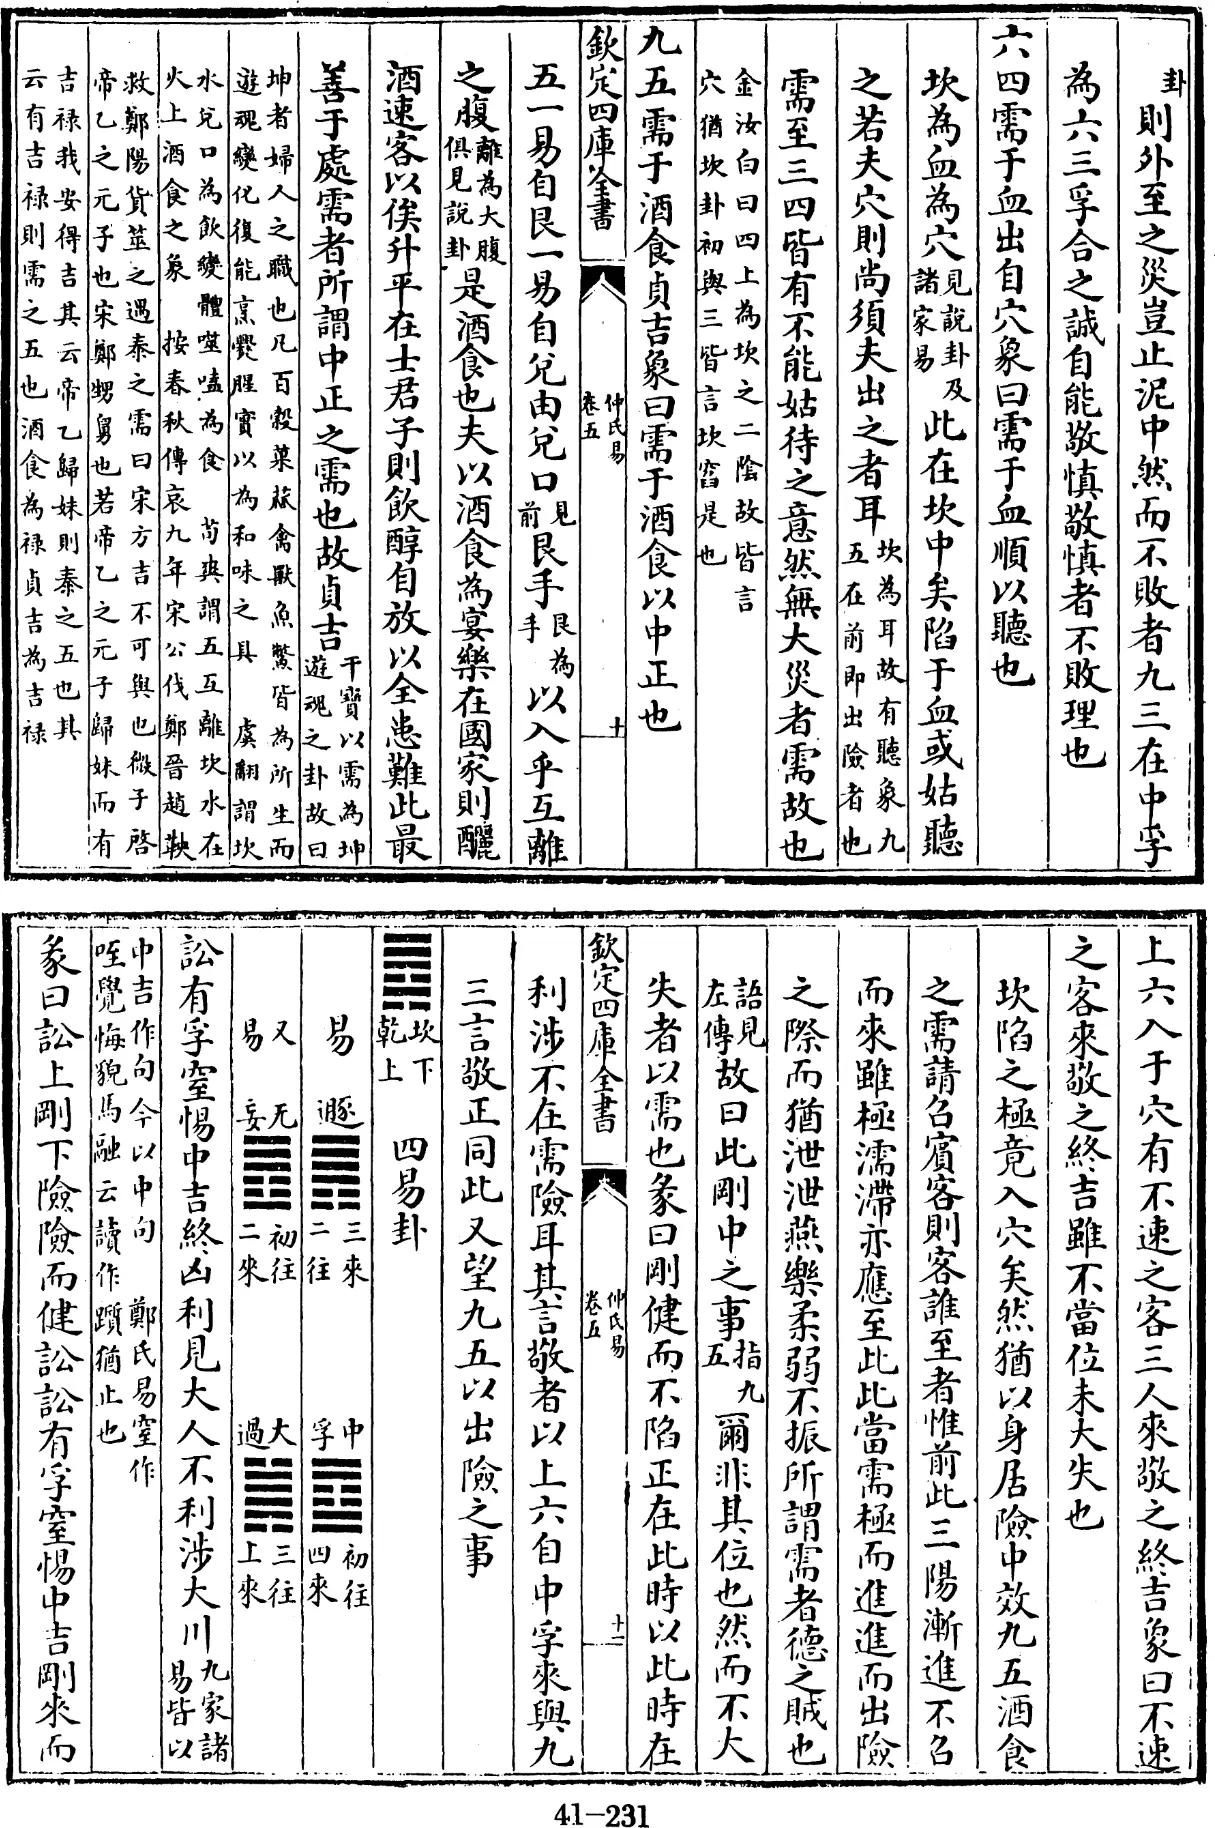 卦則外至之災豈止泥中然而不敗者九三在中孚
為六三孚合之誠自能敬慎敬慎者不敗理也
六四需于血出自穴象曰需于血順以聽也
坎為血為穴見說卦及諸家易此在坎中矣陷于血或姑聽
之若夫穴則尚須夫出之者耳坎為耳故有聽象九五在前即出險者也
需至三四皆有不能姑待之意然無大災者需故也
金汝白曰四上為坎之二陰故皆言
穴猶坎卦初與三皆言坎窞是也
九五需于酒食貞吉象曰需于酒食以中正也
欽定四庫全書
仲氏易
卷五
十
五一易自艮一易自兌由兌口見前艮手艮為手以入乎互離
之腹離為大腹俱見說卦是酒食也夫以酒食為宴樂在國家則釃
酒速客以俟升平在士君子則飲醇自放以全患難此最
善于處需者所謂中正之需也故貞吉干寶以需為坤遊魂之卦故曰
坤者婦人之職也凡百穀菓蓏禽獸魚鱉皆為所生而
遊魂變化復能烹爨腥實以為和味之具 虞翻謂坎
水兌口為飲變體噬嗑為食 荀爽謂五互離坎水在
火上酒食之象 按春秋傳哀九年宋公伐鄭晉趙鞅
救鄭陽貨筮之遇泰之需曰宋方吉不可與也微子啓
帝乙之元子也宋鄭甥舅也若帝乙之元子歸妹而有
吉祿我安得吉其云帝乙歸妹則泰之五也其
云有吉祿則需之五也酒食為祿貞吉為吉祿
上六入于穴有不速之客三人來敬之終吉象曰不速
之客來敬之終吉雖不當位未大失也
坎陷之極竟入穴矣然猶以身居險中效九五酒食
之需請召賓客則客誰至者惟前此三陽漸進不召
而來雖極濡滯亦應至此此當需極而進進而出險
之際而猶泄泄燕樂柔弱不振所謂需者德之賊也
語見左傳故曰此剛中之事指九五爾非其位也然而不大
失者以需也彖曰剛健而不陷正在此時以此時在
欽定四庫全書
仲氏易
卷五
十一
利涉不在需險耳其言敬者以上六自中孚來與九
三言敬正同此又望九五以出險之事
坎下乾上 四易卦
易 遯 三來二往 中孚 初往四來
又易 无妄 初往二來 大過 三往上來
訟有孚窒惕中吉終凶利見大人不利涉大川九家諸易皆以
中吉作句今以中句 鄭氏易窒作
咥覺悔貌馬融云讀作躓猶止也
彖曰訟上剛下險險而健訟訟有孚窒惕中吉剛來而
41-231